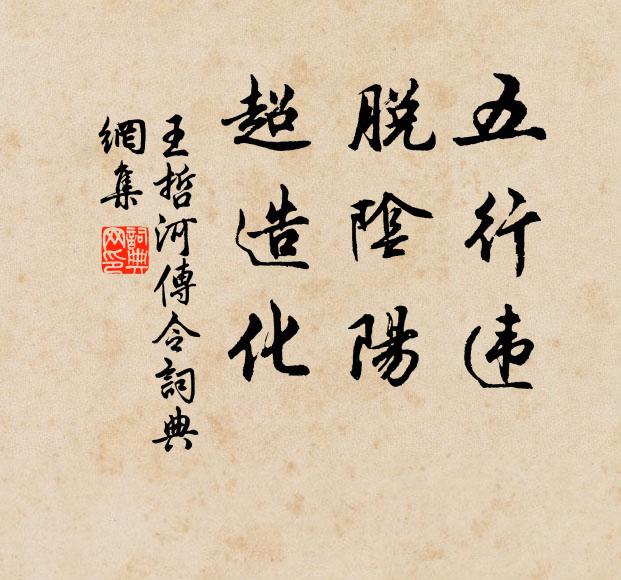 五行违
脫陰陽
超造化
王哲河傳令詞典
網集
詞典
网印